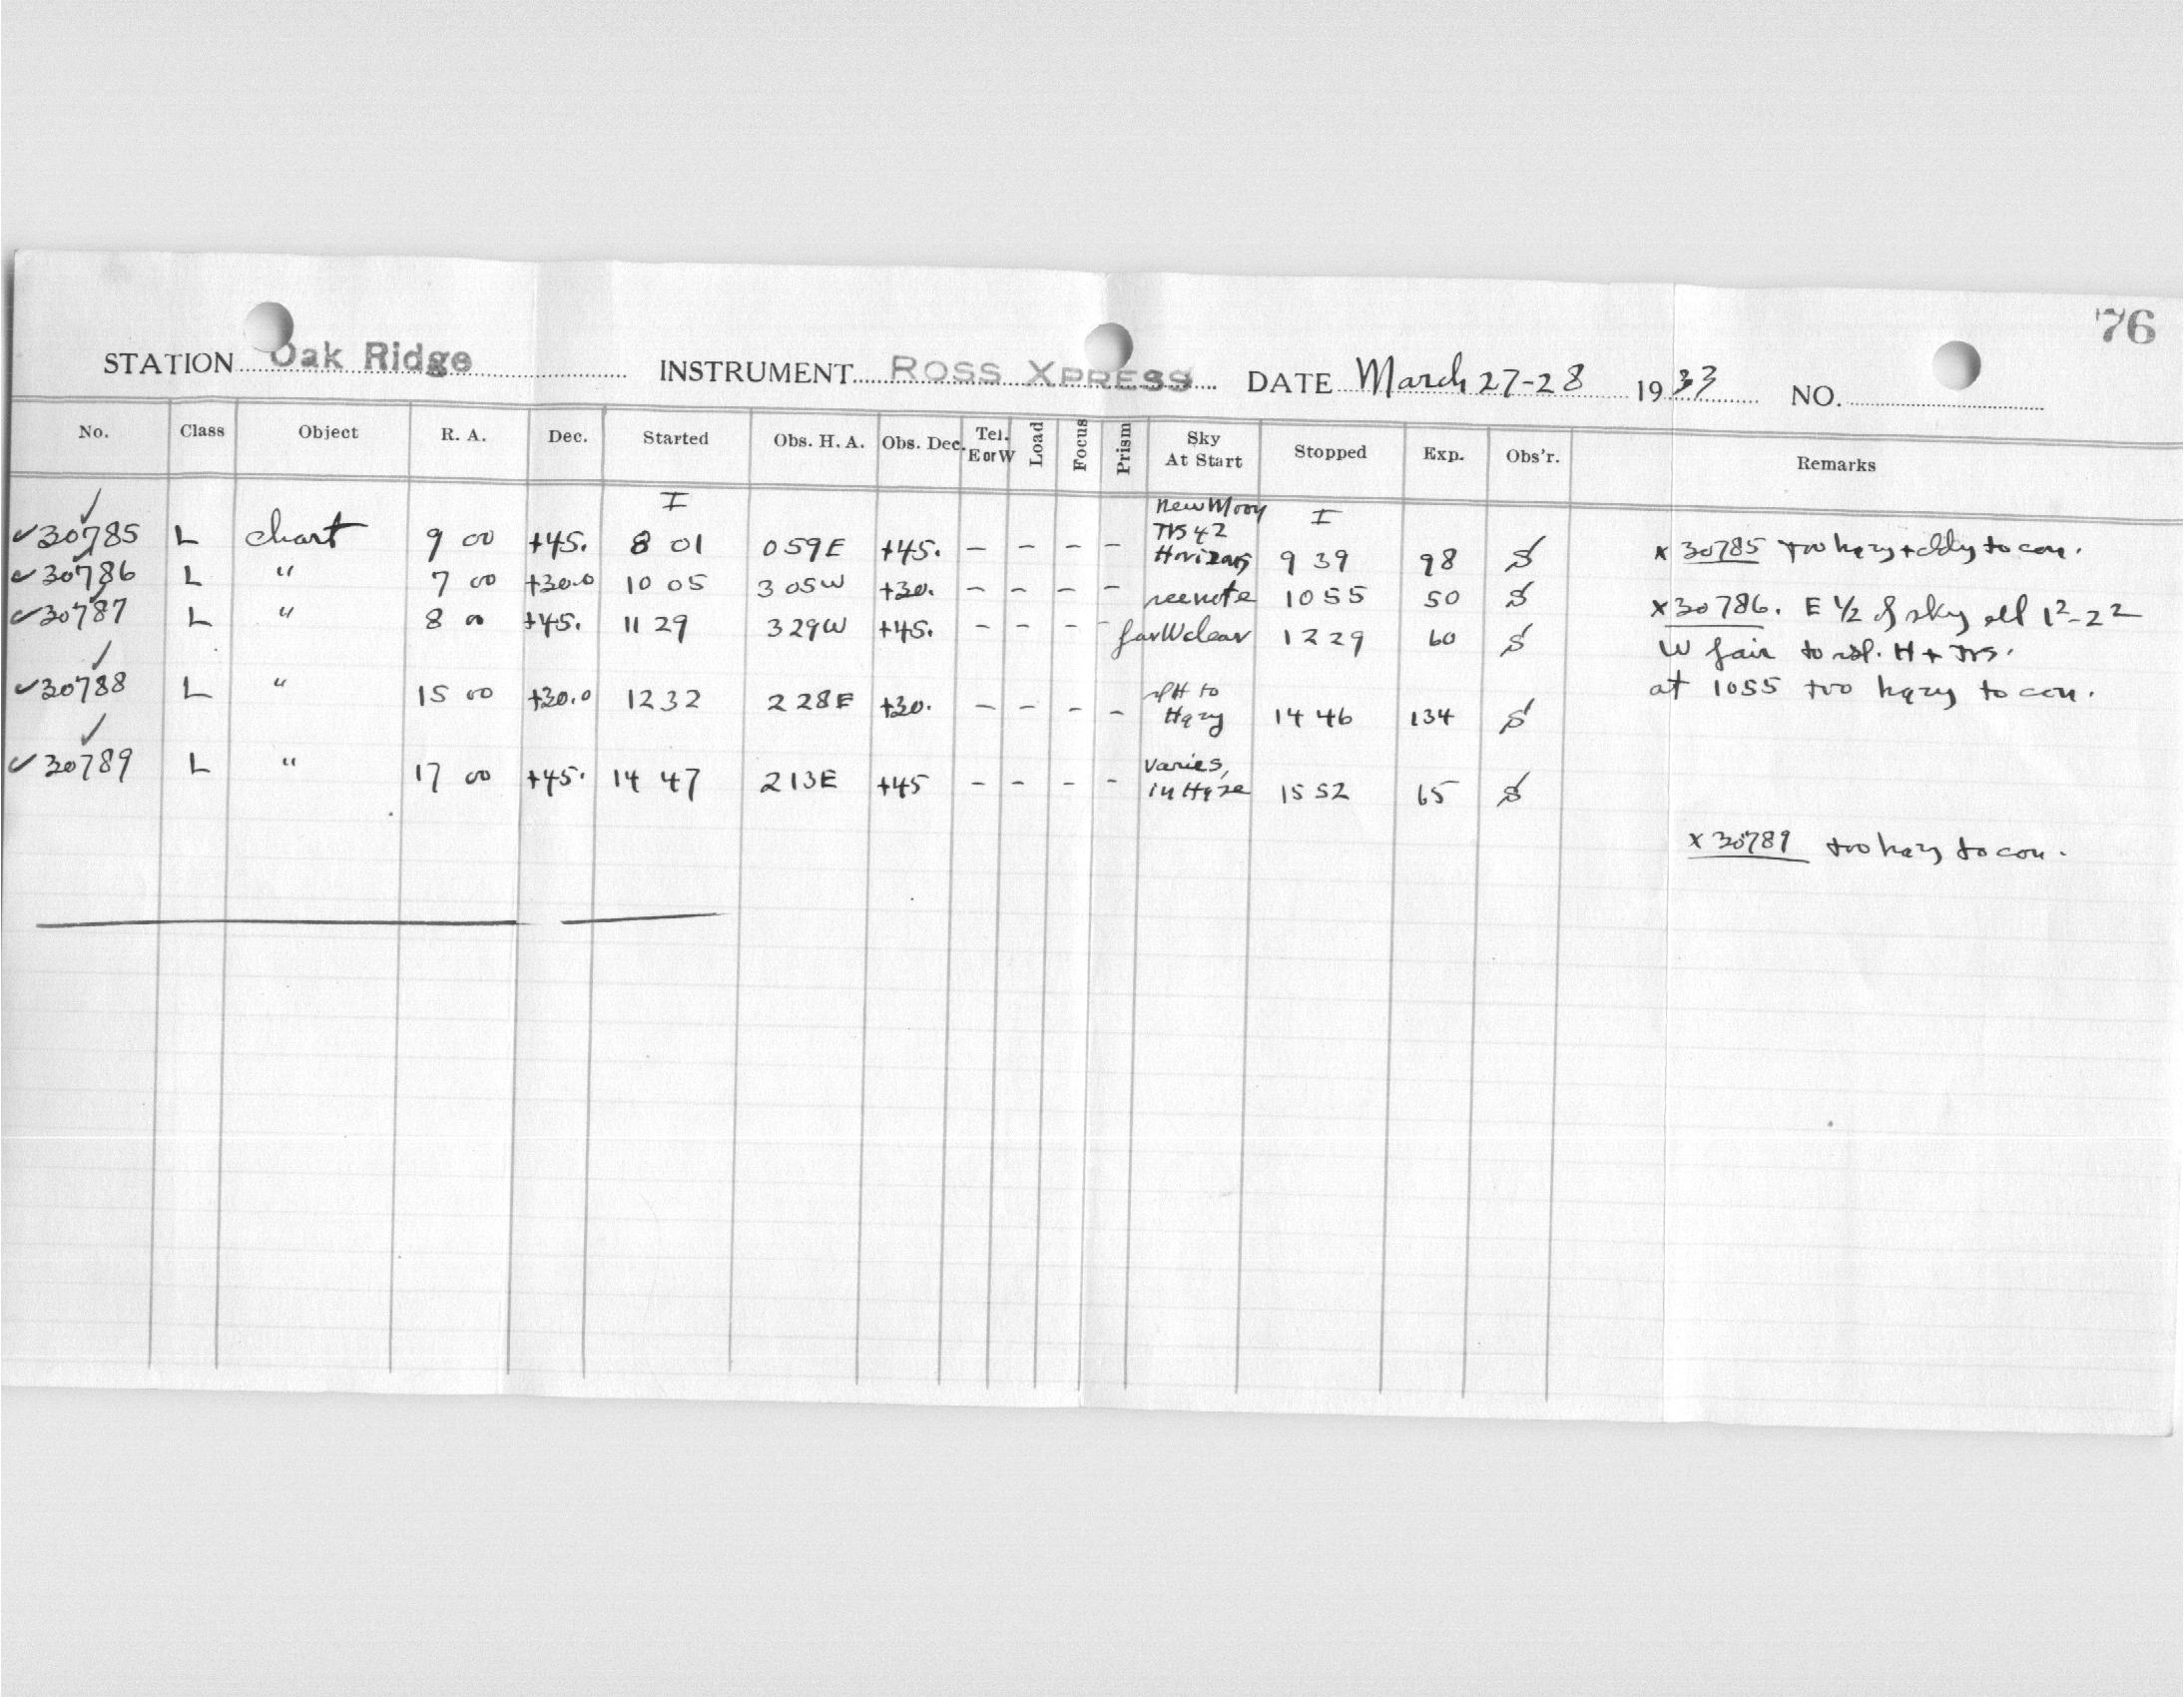 76
STATION Oak Ridge INSTRUMENT ROSS XPRESS DATE March 27-28 1933 NO.
No. Class Object R. A. Dec. Started Obs. H. A. Obs. Dec. Tel. E or W Load Focus Prism Sky At Start Stopped Exp. Obs'r. Remarks
I New Moon I
✓30785 L chart 9 00 +45. 8 01 059E +45. - - - - Horizons 9 39 98 S x 30785 too hazy + to con.
✓30786 L " 7 00 +30.0 10 05 305W +30. - - - - see note 1055 50 S x 30786. E 1/2 of sky all 1²-2²
✓30787 L " 8 00 +45. 11 29 329W +45. - - - - far W clear 1229 60 S W fair to H +
at 1055 too hazy to con.
✓30788 L " 15 00 +30.0 1232 228E +30. - - - - to Hazy 14 46 134 S
✓30789 L " 17 00 +45. 14 47 213E +45 - - - - varies, in Haze 1552 65 S
x 30789 too hazy to con.